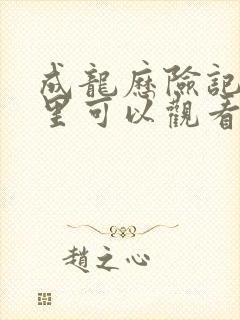 成龍歷險記
里可以觀看
趙之心